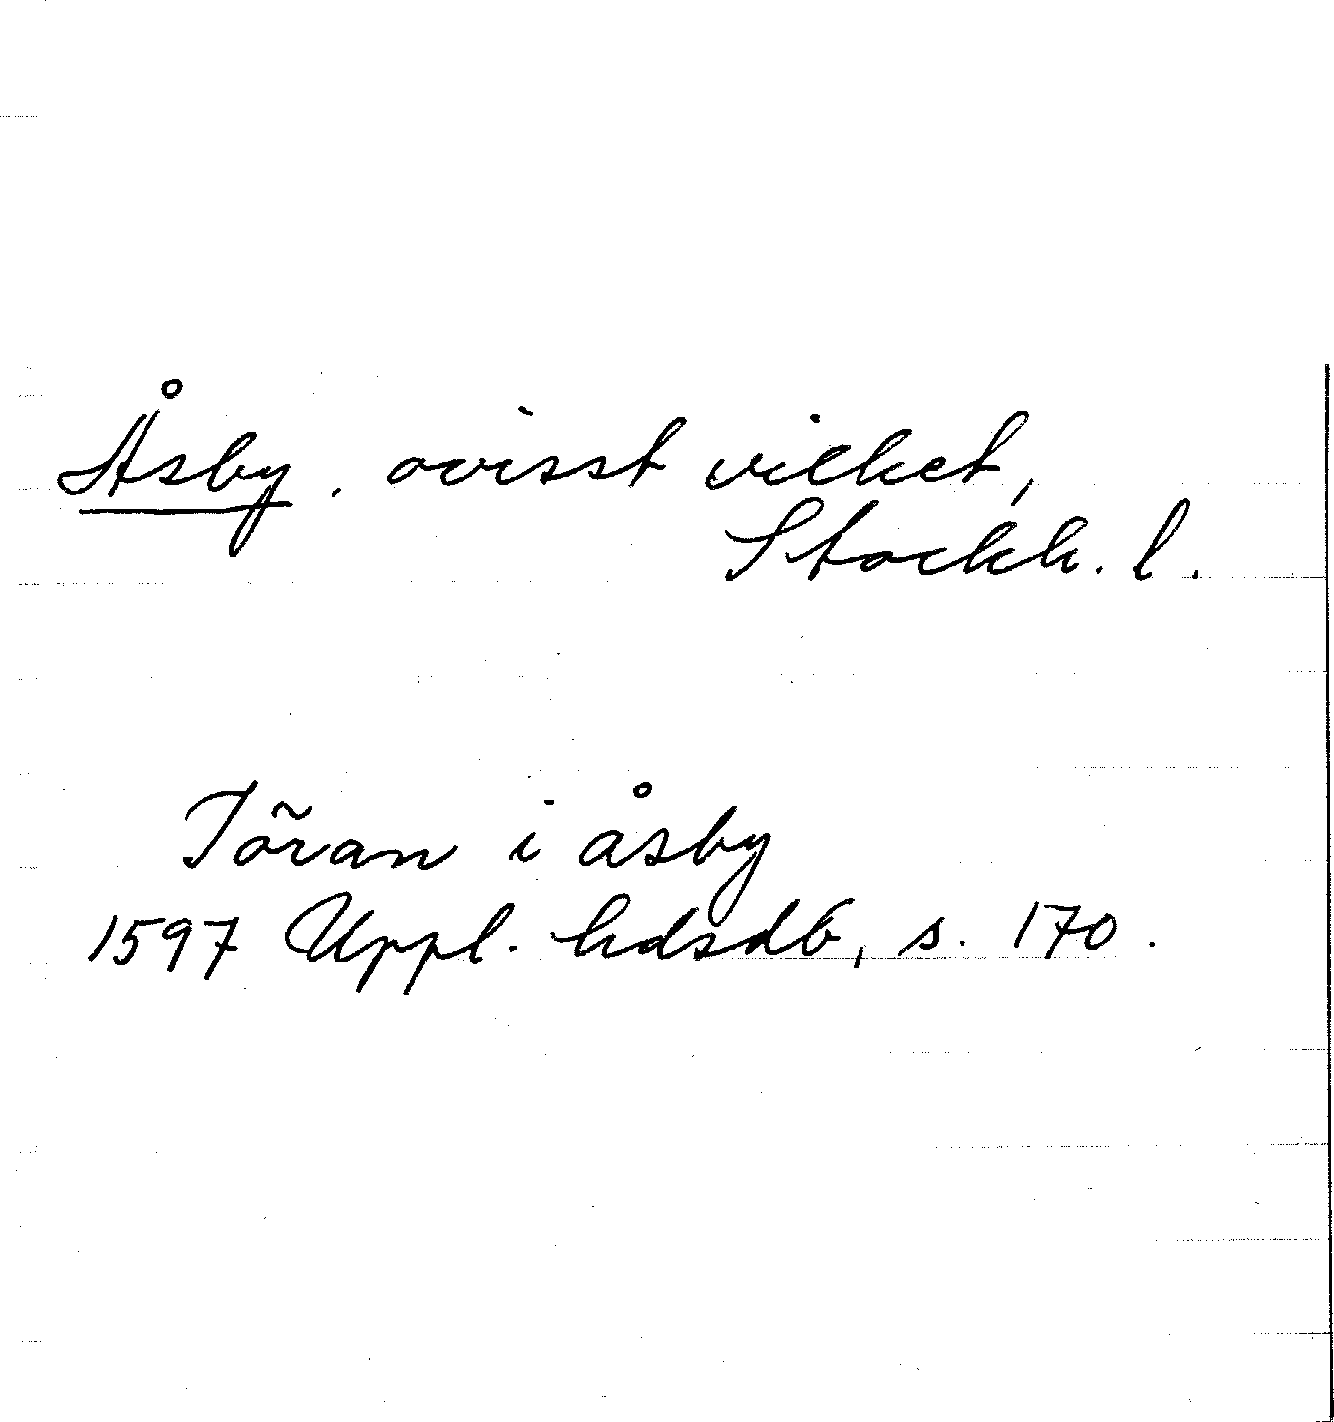 Åsby, ovisst vilket,
Stockh. l.
Jöran i åsby
1597 Uppl. hdsdb, s. 170.